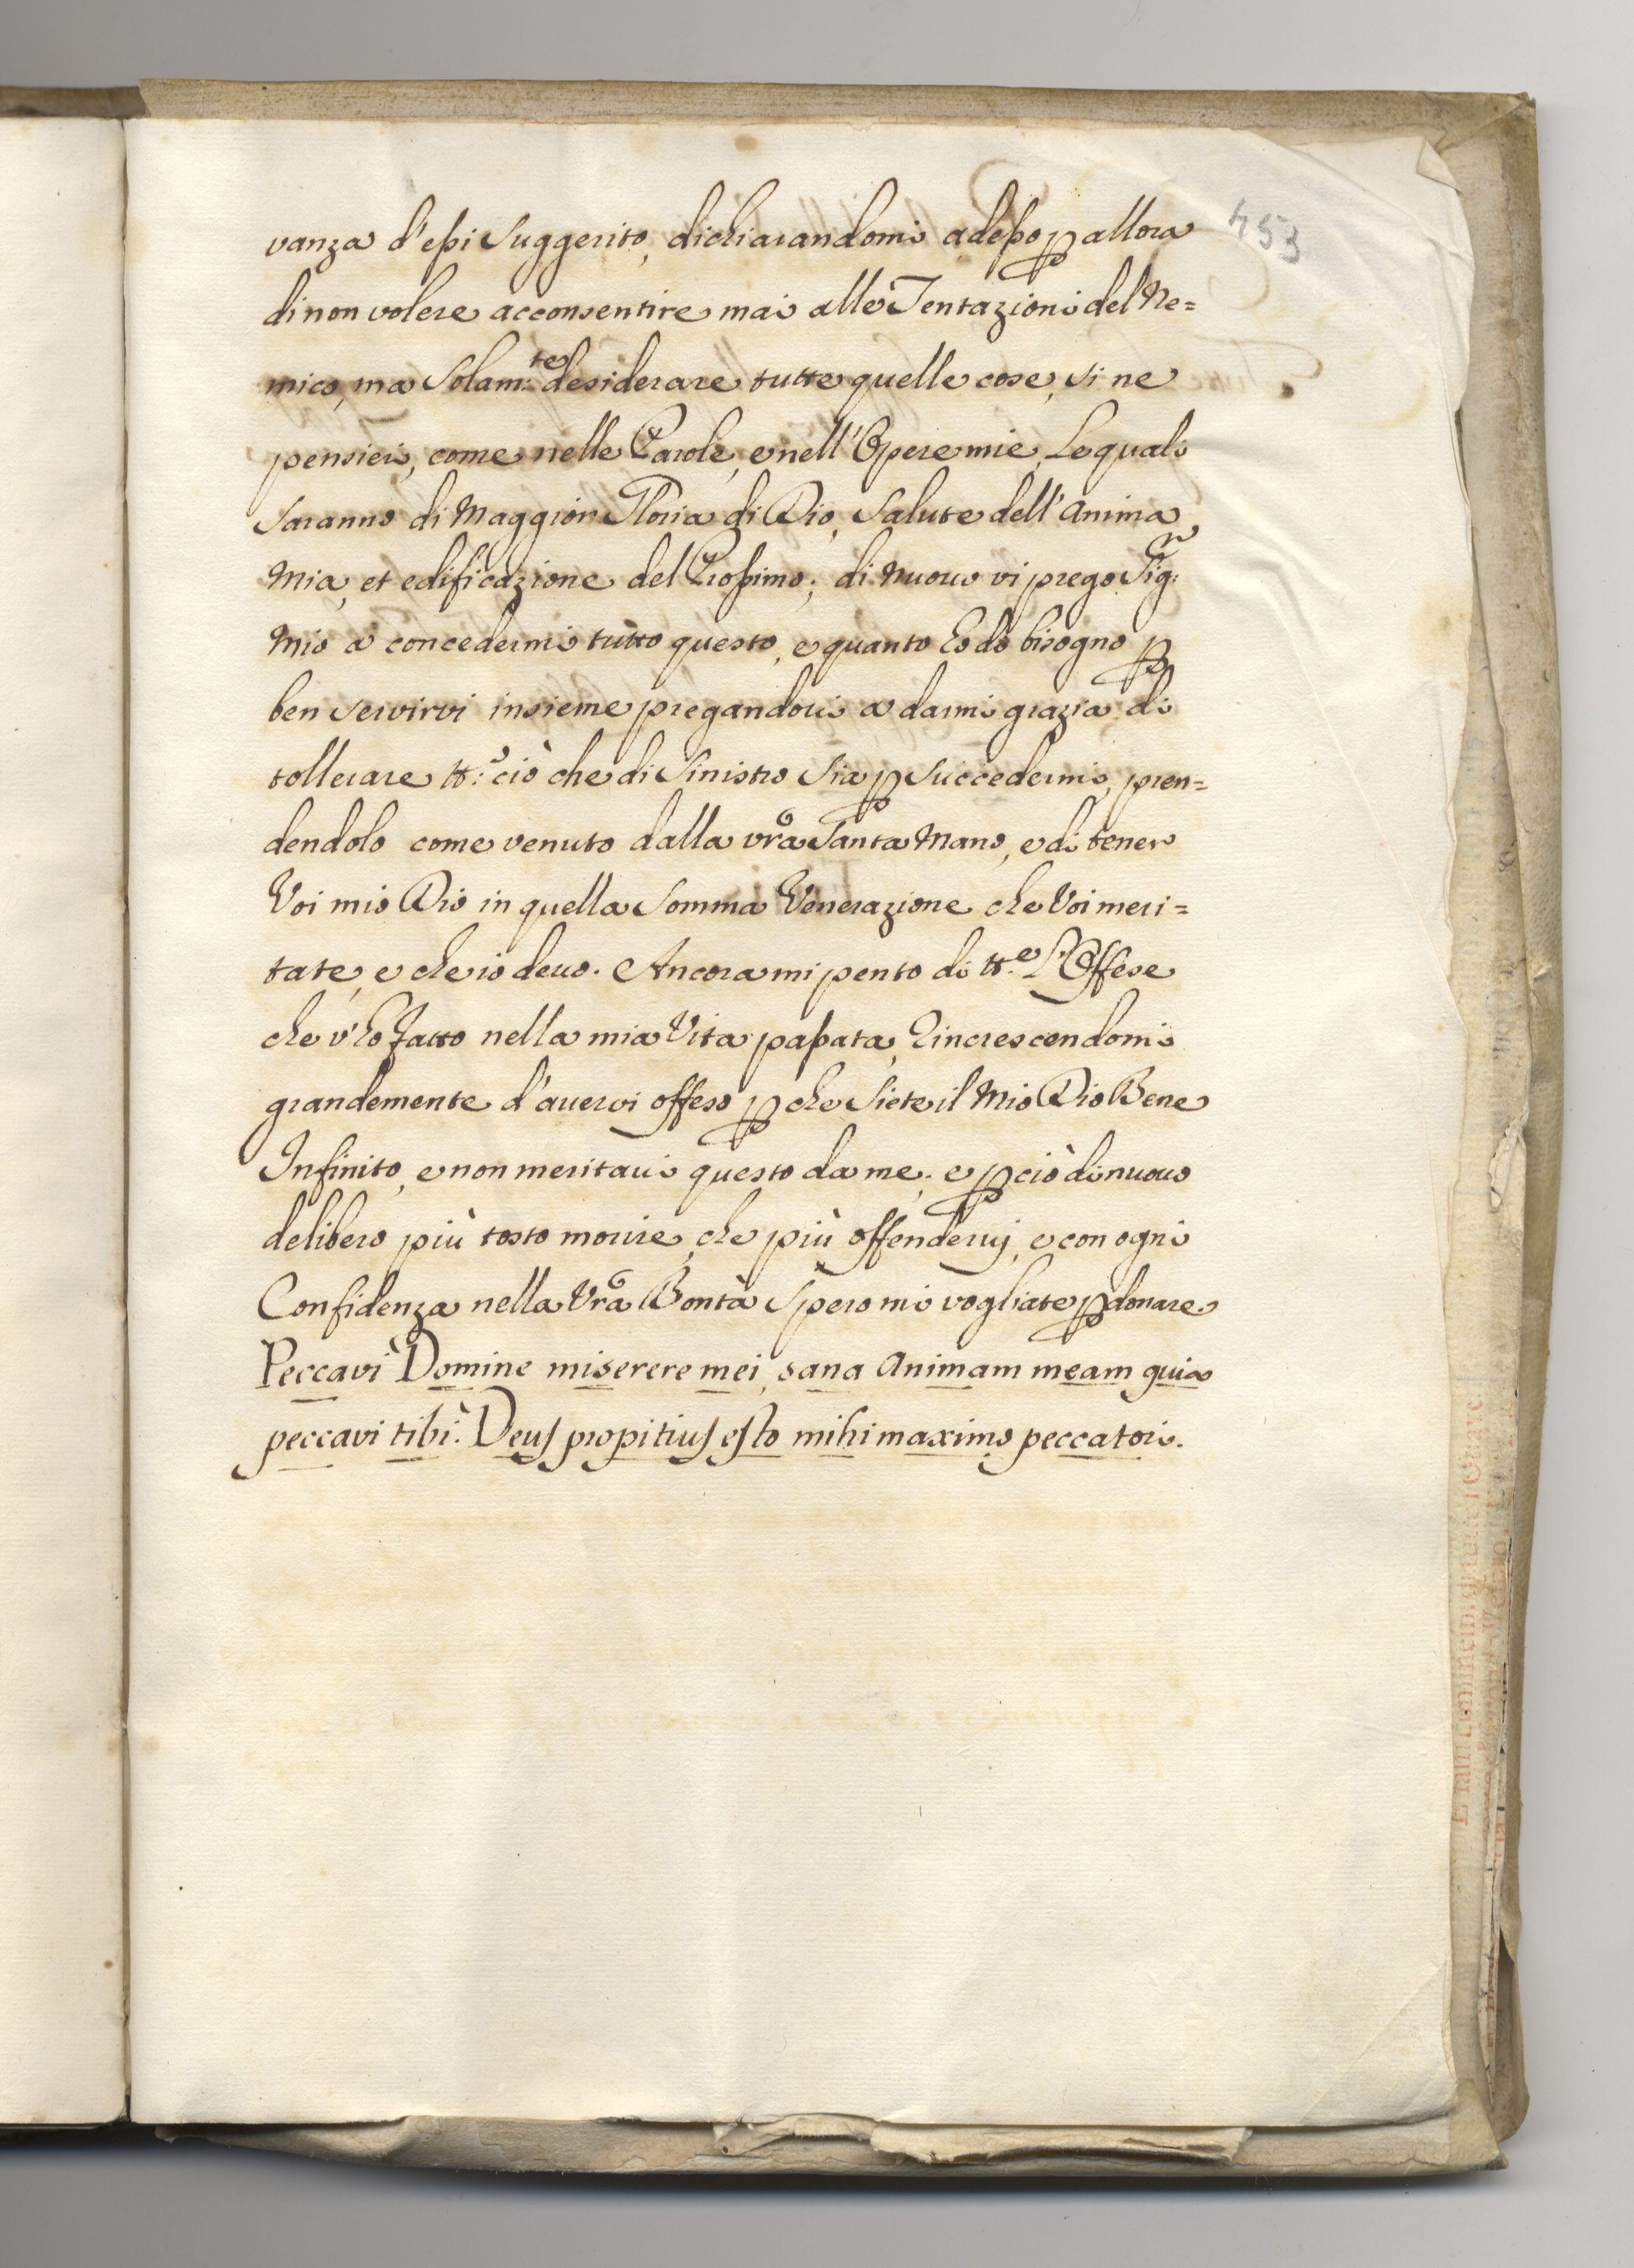 453
vanza d'eßi Suggerito, dichiarandomi adeßo ꝑ allora
di non volere acconsentire mai alle Tentazioni del Ne=
mico, ma Solam:te desiderare tutte quelle cose, si ne
pensieri, come nelle Parole, e nell'Opere mie, Le quali
Saranno di Maggior Gloria di Dio, Salute dell'Anima
Mia, et edificazione del Proßimo; di nuovo vi prego Sig:r
Mio a concedermi tutto questo, e quanto Io hò bisogno ꝑ
ben servirvi insieme pregandovi a darmi grazia di
tollerare tt:o ciò che di Sinistro Sia ꝑ Succedermi, pren=
dendolo come venuto dalla vrã Santa Mano, e di tener
Voi mio Dio in quella Somma Venerazione che Voi meri=
tate, e che io devo. Ancora mi pento di tt.e l'Offese
che v'ho Fatto nella mia Vita paßata, Rincrescendomi
grandemente d'avervi offeso ꝑche Siete il Mio Dio Bene
Infinito, e non meritavi questo da me; e ꝑciò di nuovo
delibero più tosto morire, che più offendervj, e con ogni
Confidenza nella Vrã Bontà Spero mi vogliate ꝑdonare
Peccavi Domine miserere mei, sana Animam meam quia
peccavi tibi: Deus propitius esto mihi maximo peccatori.